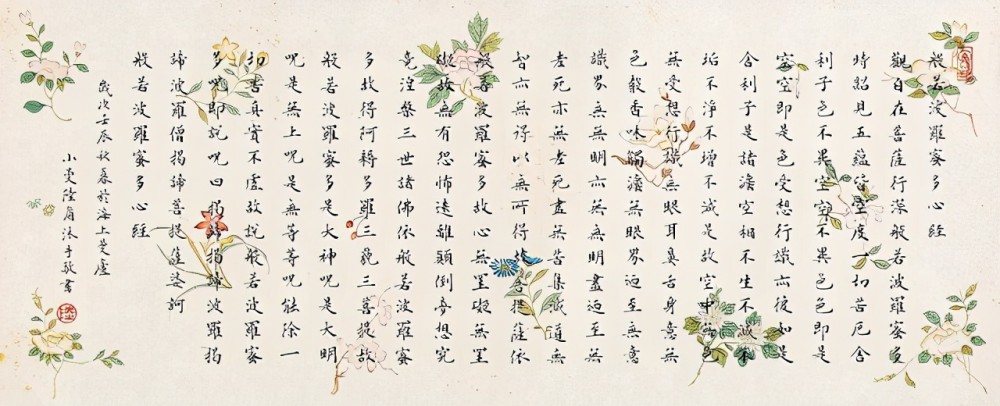 般若波羅蜜多心經
觀自在菩薩行深般若波羅蜜多
時照見五蘊皆空度一切苦厄舍
利子色不異空空不異色色即是
空空即是色受想行識亦復如是
舍利子是諸灋空相不生不滅不
垢不淨不增不減是故空中無色
無受想行識無眼耳鼻舌身意無
色聲香味觸灋無眼界迺至無意
識界無無明亦無無明盡迺至無
老死亦無老死盡無苦集滅道無
智亦無得以無所得故菩提薩依
般若波羅蜜多故心無罣礙無罣
礙故無有恐怖遠離顛倒夢想究
竟涅槃三世諸佛依般若波羅蜜
多故得阿耨多羅三藐三菩提故
般若波羅蜜多是大神呪是大明
呪是無上呪是無等等呪能除一
切苦真實不虛故說般若波羅蜜
多呪即說呪曰揭諦揭諦波羅揭
諦波羅僧揭諦菩提薩婆訶
般若波羅蜜多心經
歲次壬辰秋暮於海上芝廬
小奕陸眉沐手敬書